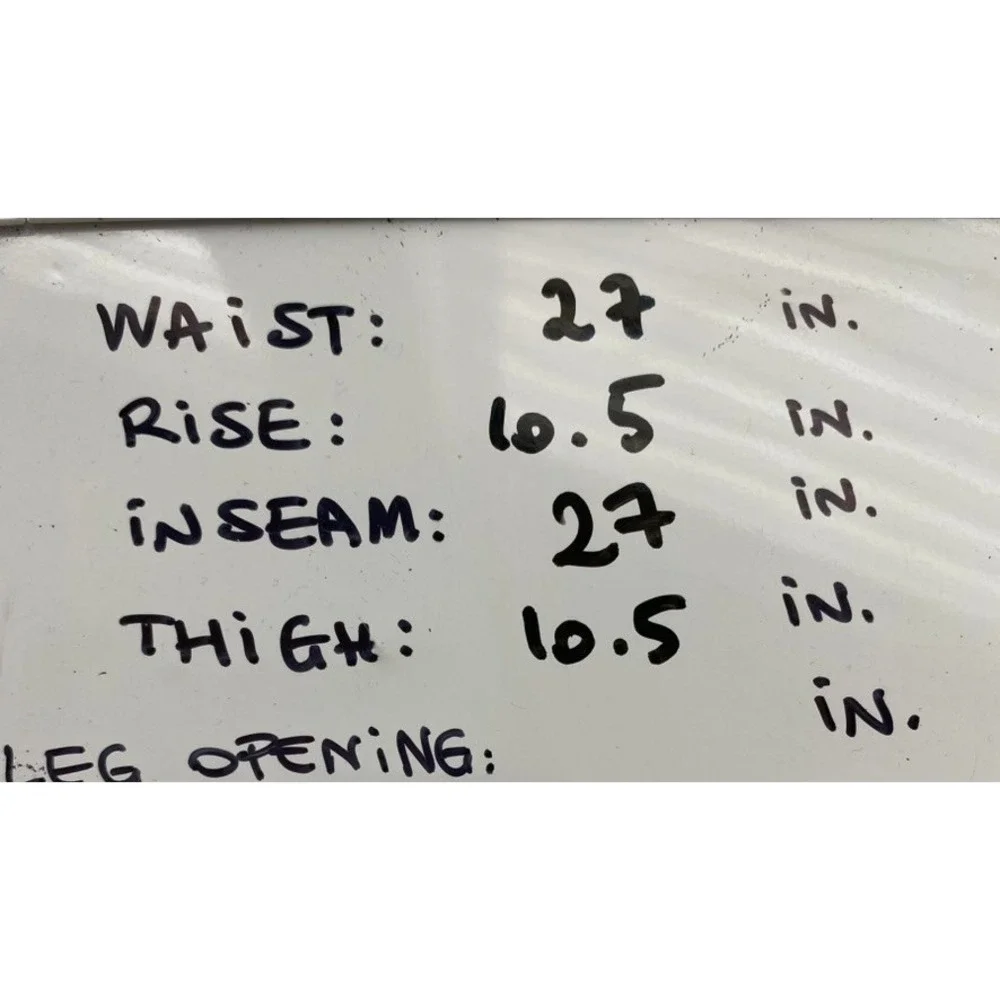 WAiST: 27 iN.
RiSE: 10.5 iN.
iNSEAM: 27 iN.
THiGH: 10.5 iN.
LEG OPENiNG: iN.